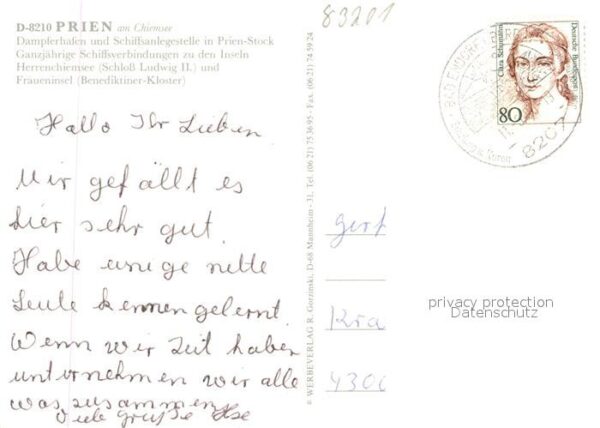 D-8210 PRIEN am Chiemsee
Dampferhafen und Schiffsanlegestelle in Prien-Stock
Ganzjährige Schiffsverbindungen zu den Inseln
Herrenchiemsee (Schloß Ludwig II.) und
Fraueninsel (Benediktiner-Kloster)
83201
Hallo Ihr Lieben
Mir gefällt es
hier sehr gut.
Habe einige nette
Leute kennengelernt.
Wenn wir Zeit haben
unternehmen wir alle
was zusammen
Viele Grüße Ilse
© WERBEVERLAG R. Gorzinski, D-68 Mannheim-31, Tel. (06 21) 75 36 95 - Fax. (06 21) 74 59 24
Clara Schumann
Deutsche Bundespost
80
BAD ENDORF
8207
Gert
Kra
4300
privacy protection
Datenschutz